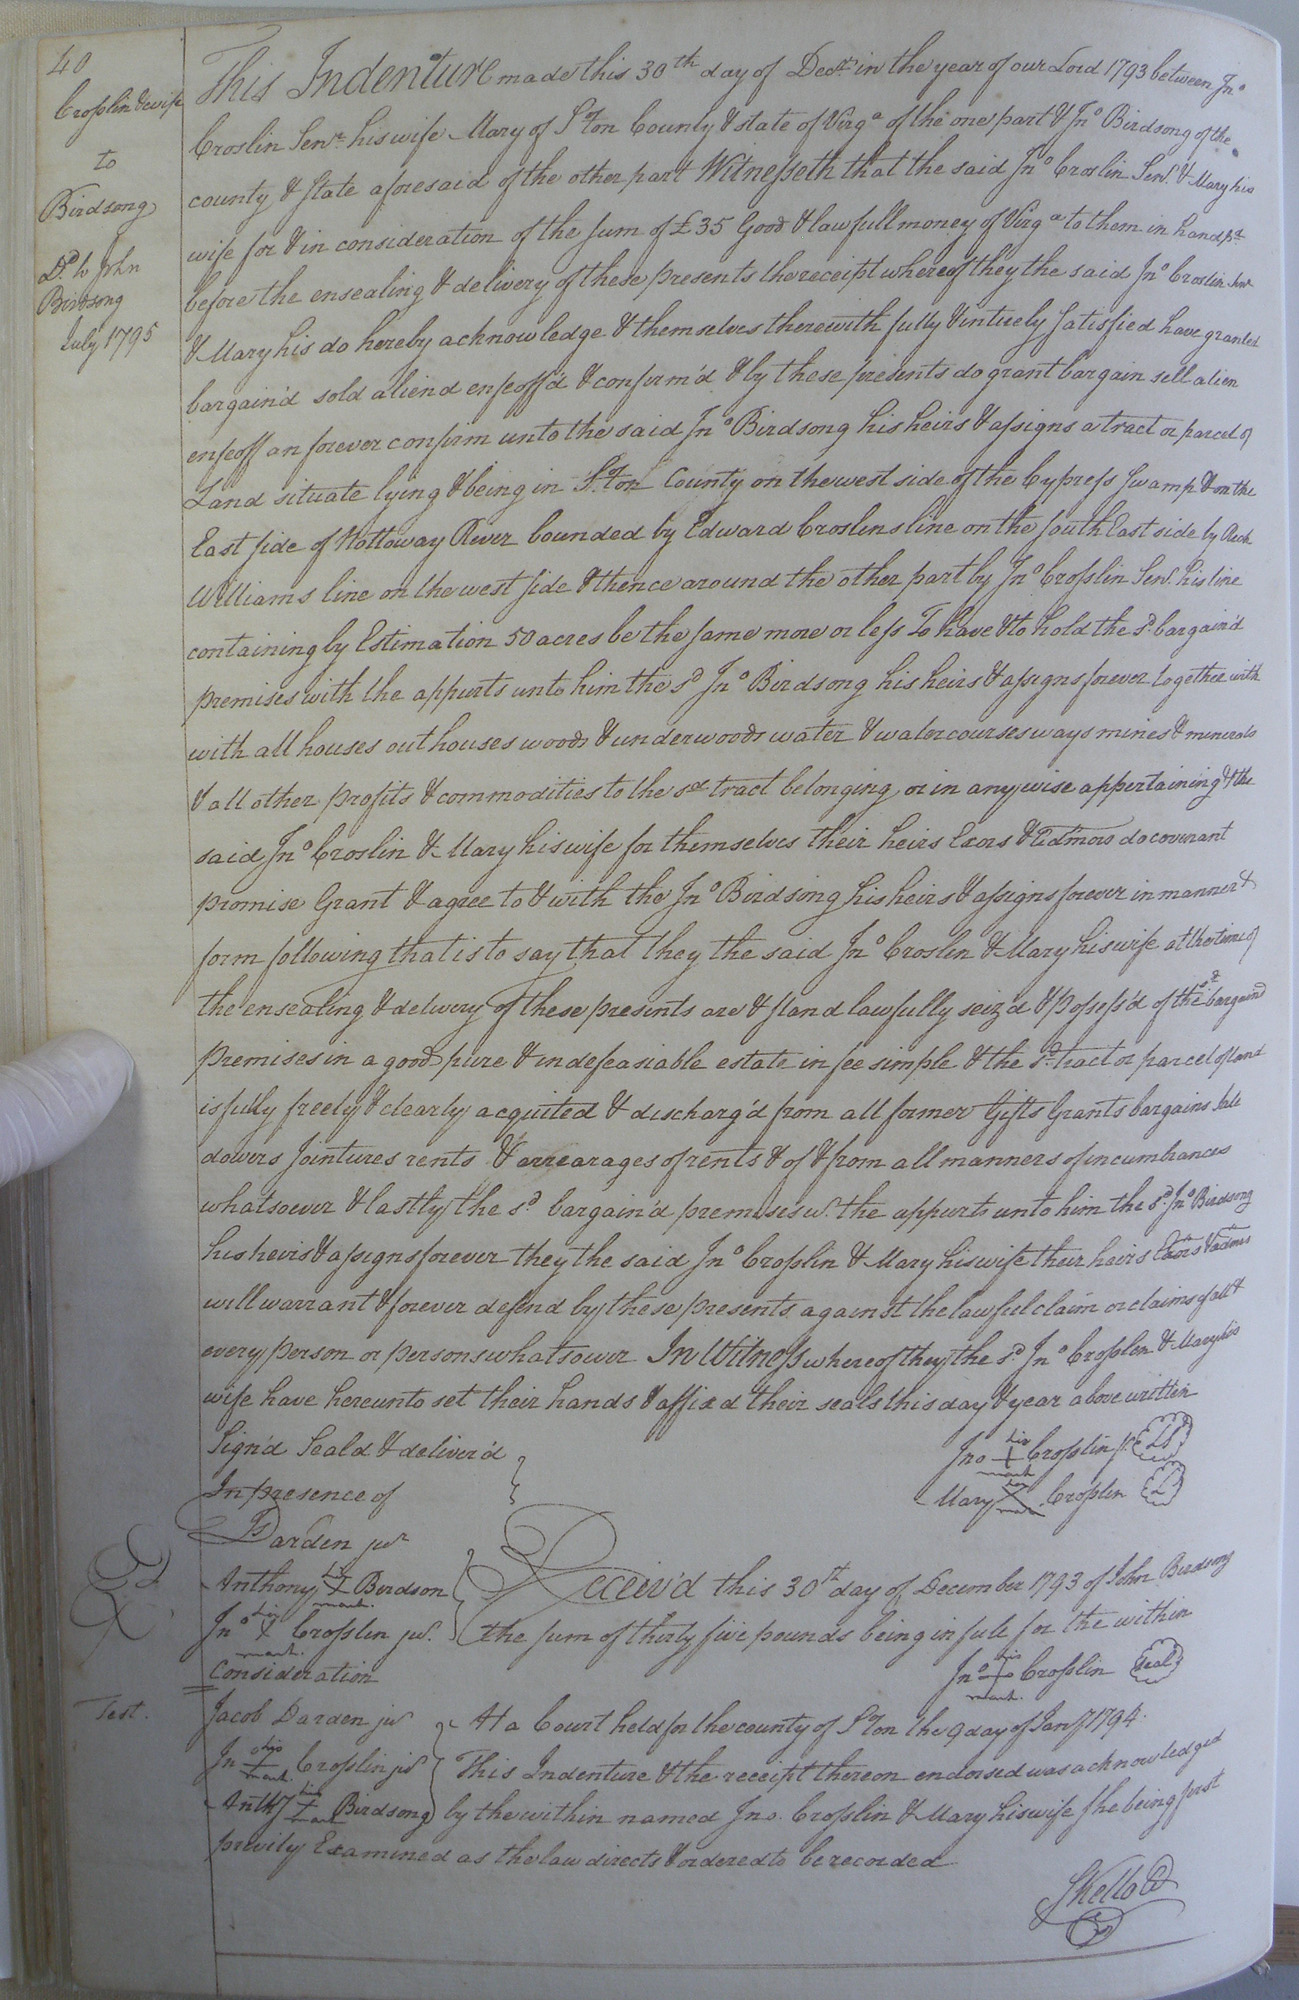 40
Croslin & wife
to
Birdsong
Dd. to John
Birdsong
July 1795
This Indenture made this 30th day of Decr. in the year of our Lord 1793 between Jno
Croslin Senr. his wife Mary of S.ton County & state of Virga of the one part & Jno Birdsong of the
county & state aforesaid of the other part Witnesseth that the said Jno Croslin Senr. & Mary his
wife for & in consideration of the sum of £35 Good & lawfull money of Virga to them in hand pd.
before the ensealing & delivery of these presents the receipt whereof they the said Jno Croslin Senr
& Mary his do hereby acknowledge & themselves therewith fully & intirely satisfied have granted
bargain'd sold aliend enfeoff'd & confirm'd & by these presents do grant bargain sell alien
enfeoff an forever confirm unto the said Jno Birdsong his heirs & assigns a tract or parcel of
Land situate lying & being in S.ton County on the west side of the Cypress Swamp & on the
East side of Nottoway River bounded by Edward Croslins line on the south East side by
Williams line on the west side & thence around the other part by Jno Crosslin Senr. his line
containing by Estimation 50 acres be the same more or less To have & to hold the sd. bargain'd
premises with the appurts unto him the sd Jno Birdsong his heirs & assigns forever together with
with all houses out houses woods & underwoods water & watercourses ways mines & minerals
& all other profits & commodities to the sd tract belonging or in anywise appertaining & the
said Jno Croslin & Mary his wife for themselves their heirs Exors & Admors do covenant
promise Grant & agree to & with the Jno Birdsong his heirs & assigns forever in manner &
form following that is to say that they the said Jno Croslin & Mary his wife at the time of
the ensealing & delivery of these presents are & stand lawfully seiz'd & Possess'd of the sd. bargaind
premises in a good pure & indefeasiable estate in fee simple & the sd. tract or parcel of land
is fully freely & clearly acquited & discharg'd from all former Gifts Grants bargains Sale
dowers Jointures rents & arrearages of rents & of & from all manners of incumbrances
whatsoever & lastly the sd. bargain'd premises w. the appurts unto him the sd. Jno Birdsong
his heirs & assigns forever they the said Jno Crosslin & Mary his wife their heirs Exors & admrs
will warrant & forever defend by these presents against the lawful claim or claims of all &
every person or persons whatsoever In Witness whereof they the sd. Jno Crosslen & Mary his
wife have hereunto set their hands & affixd their seals this day & year above written
Sign'd Seald & deliver'd
In presence of
Jno his + mark Crosslin LS
Mary her X mark Crosslen LS
Darden jur
Anthony his + mark Birdson
Jno his + mark Crosslin jur.
Receiv'd this 30th day of December 1793 of John Birdsong
the sum of thirty five pounds being in full for the within
Consideration
Jno his + mark Crosslin Seal
Test.
Jacob Darden jur
Jn his + mark Crosslin jur
Anthy his + mark Birdsong
At a Court held for the county of S.ton the 9 day of Jany 1794.
This Indenture & the receipt thereon endorsed was acknowledged
by the within named Jno. Crosslin & Mary his wife she being first
previly Examined as the law directs & ordered to be recorded